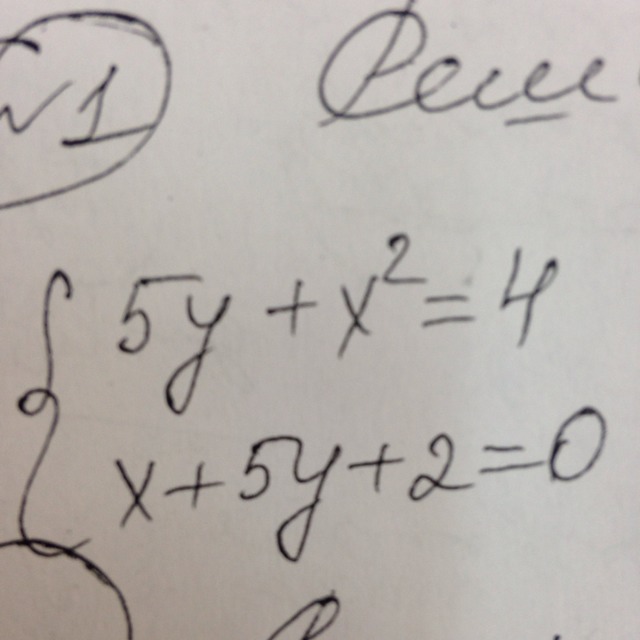 √1 Реш
5y + x² = 4
x + 5y + 2 = 0